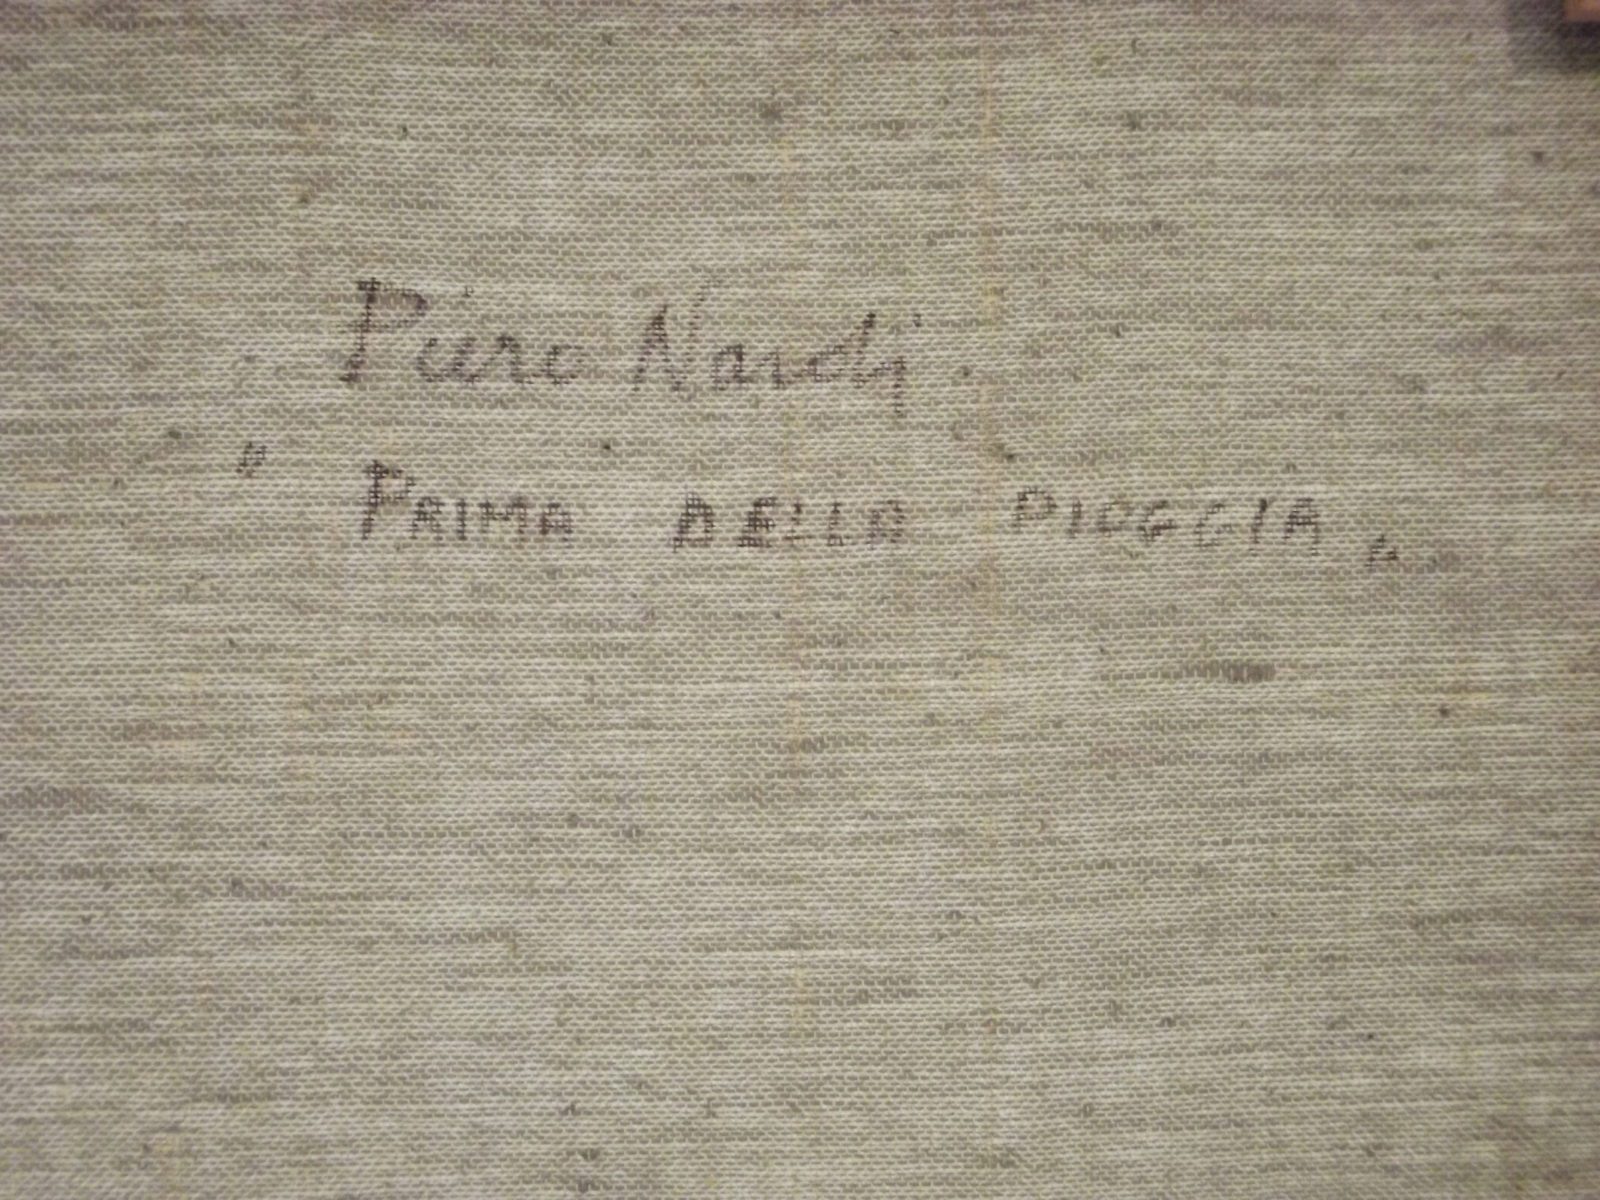 Piero Nardi
" PRIMA DELLA PIOGGIA "